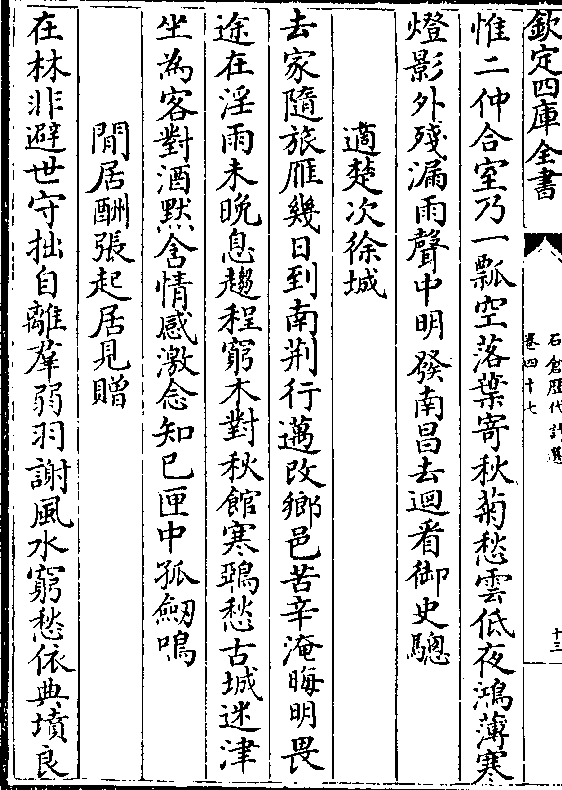 欽定四庫全書
石倉歷代詩選
卷四十七
十三
惟二仲合室乃一瓢空落葉寄秋菊愁雲低夜鴻薄寒
燈影外殘漏雨聲中明發南昌去迴看御史驄
適楚次徐城
去家隨旅雁幾日到南荆行邁改鄉邑苦辛淹晦明畏
途在淫雨未晚息趨程窮木對秋館寒鵶愁古城迷津
坐為客對酒默含情感激念知己匣中孤劒鳴
閒居酬張起居見贈
在林非避世守拙自離羣弱羽謝風水窮愁依典墳良